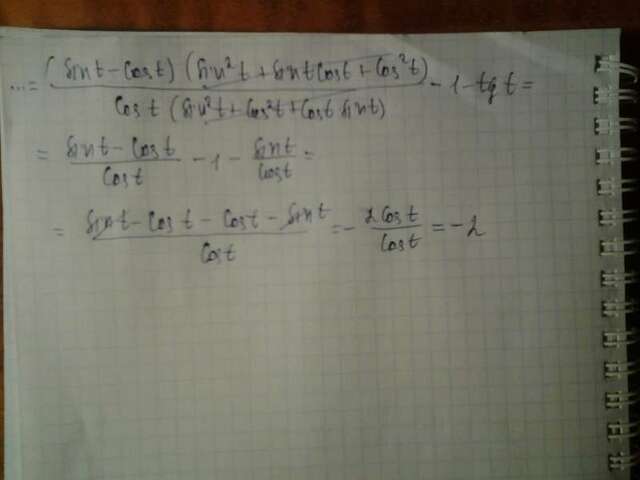 ...= (sint - cost) (sin²t + sint cost + cos²t) / cost (sin²t + cos²t + cost sint) - 1 - tg t =
= sint - cost / cost - 1 - sint / cost =
= sint - cost - cost - sint / cost = - 2cost / cost = - 2